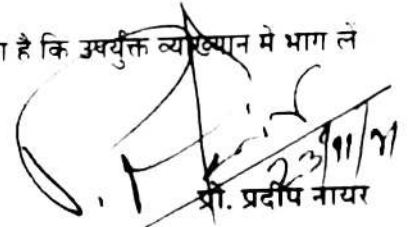 है कि उपर्युक्त व्याख्यान मे भाग लें
23/11/21
प्रो. प्रदीप नायर